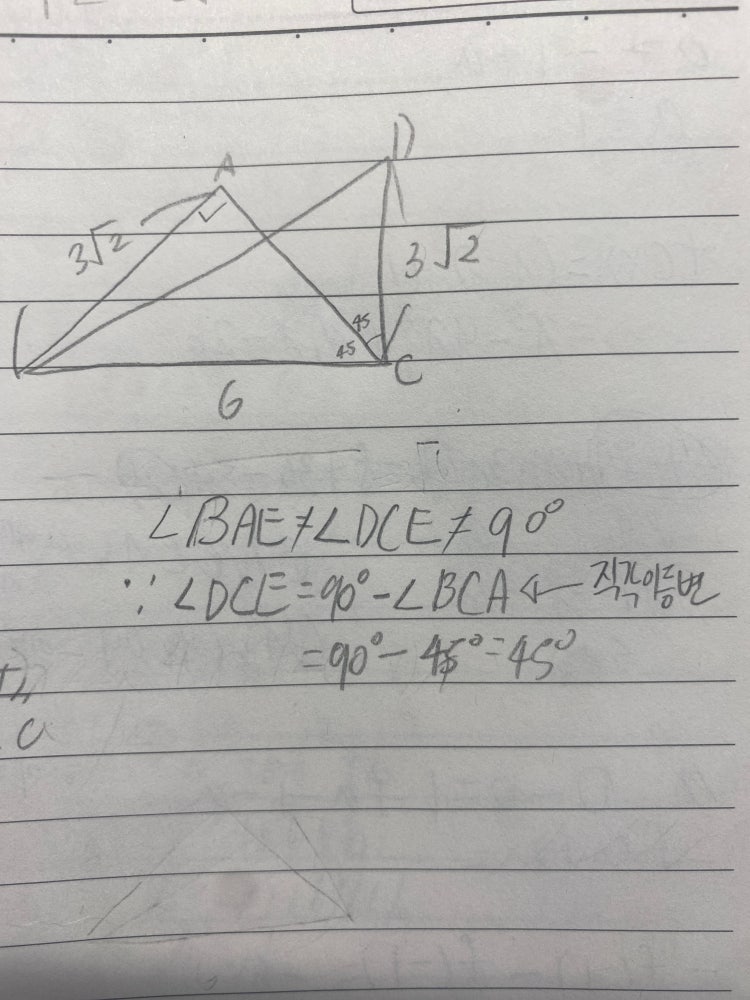 A
D
3√2
3√2
45
45
C
6
∠BAE≠∠DCE≠90°
∵ ∠DCE=90°-∠BCA ← 직각이등변
=90°-45°=45°